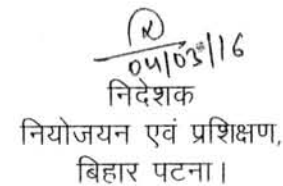 04/03/16
निदेशक
नियोजयन एवं प्रशिक्षण,
बिहार पटना।